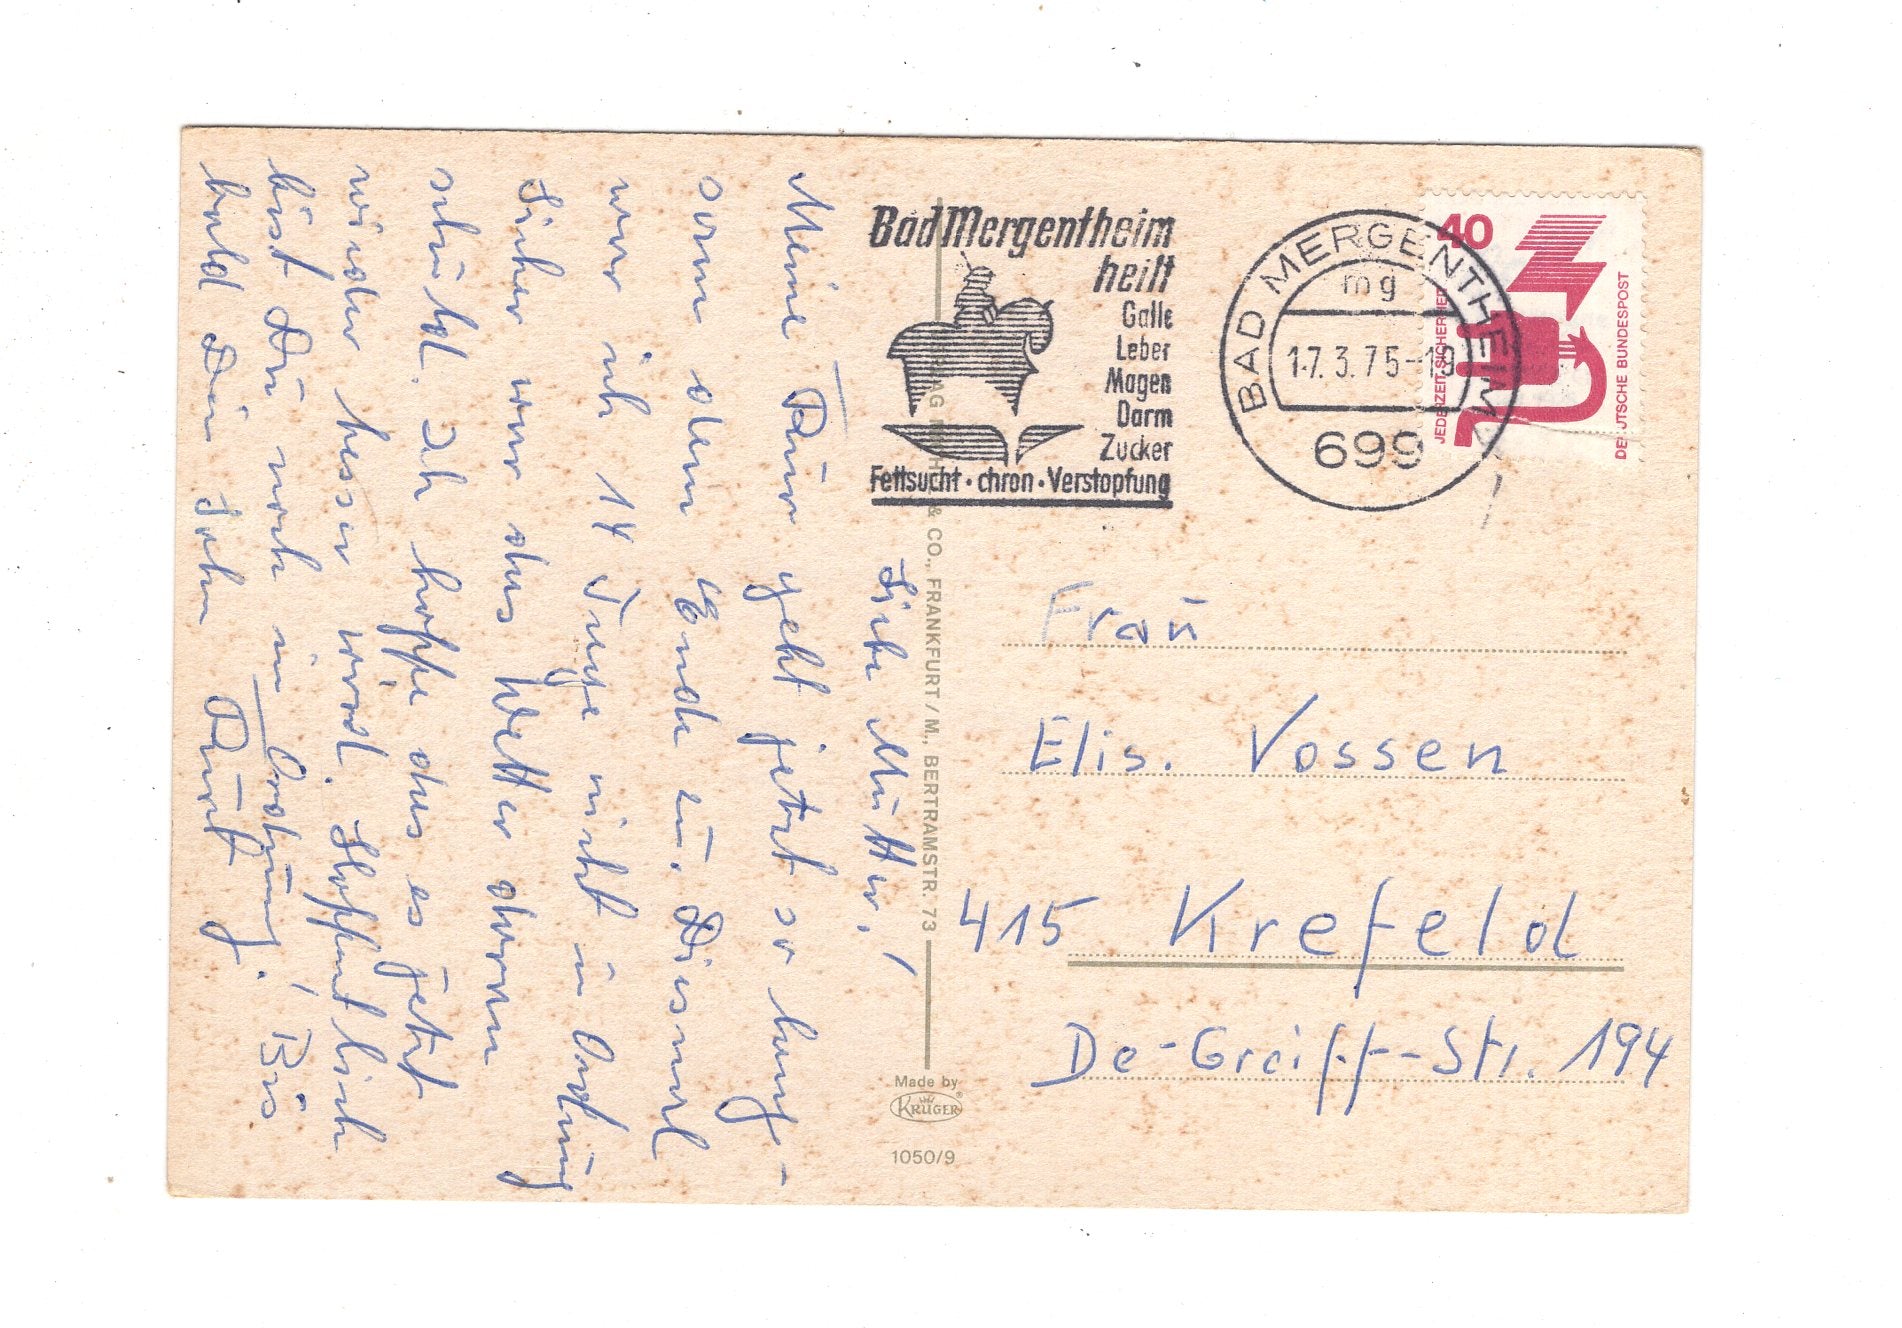 Liebe Mutter,
Meine Kur geht jetzt so lang-
sam dem Ende zu. Diesmal
war ich 14 Tage nicht in Ordnung
Sicher war das Wetter daran
schuld. Ich hoffe das es jetzt
wieder besser wird. Hoffentlich
bist Du noch in Ordnung! Bis
bald Dein Sohn Kurt
Bad Mergentheim
heilt
Galle
Leber
Magen
Darm
Zucker
Fettsucht · chron · Verstopfung
BAD MERGENTHEIM
mg
17.3.75-19
699
40
JEDERZEIT SICHERHEIT
DEUTSCHE BUNDESPOST
& CO., FRANKFURT / M., BERTRAMSTR. 73
Made by
KRÜGER®
1050/9
Frau
Elis. Vossen
415 Krefeld
De-Greiff-Str. 194